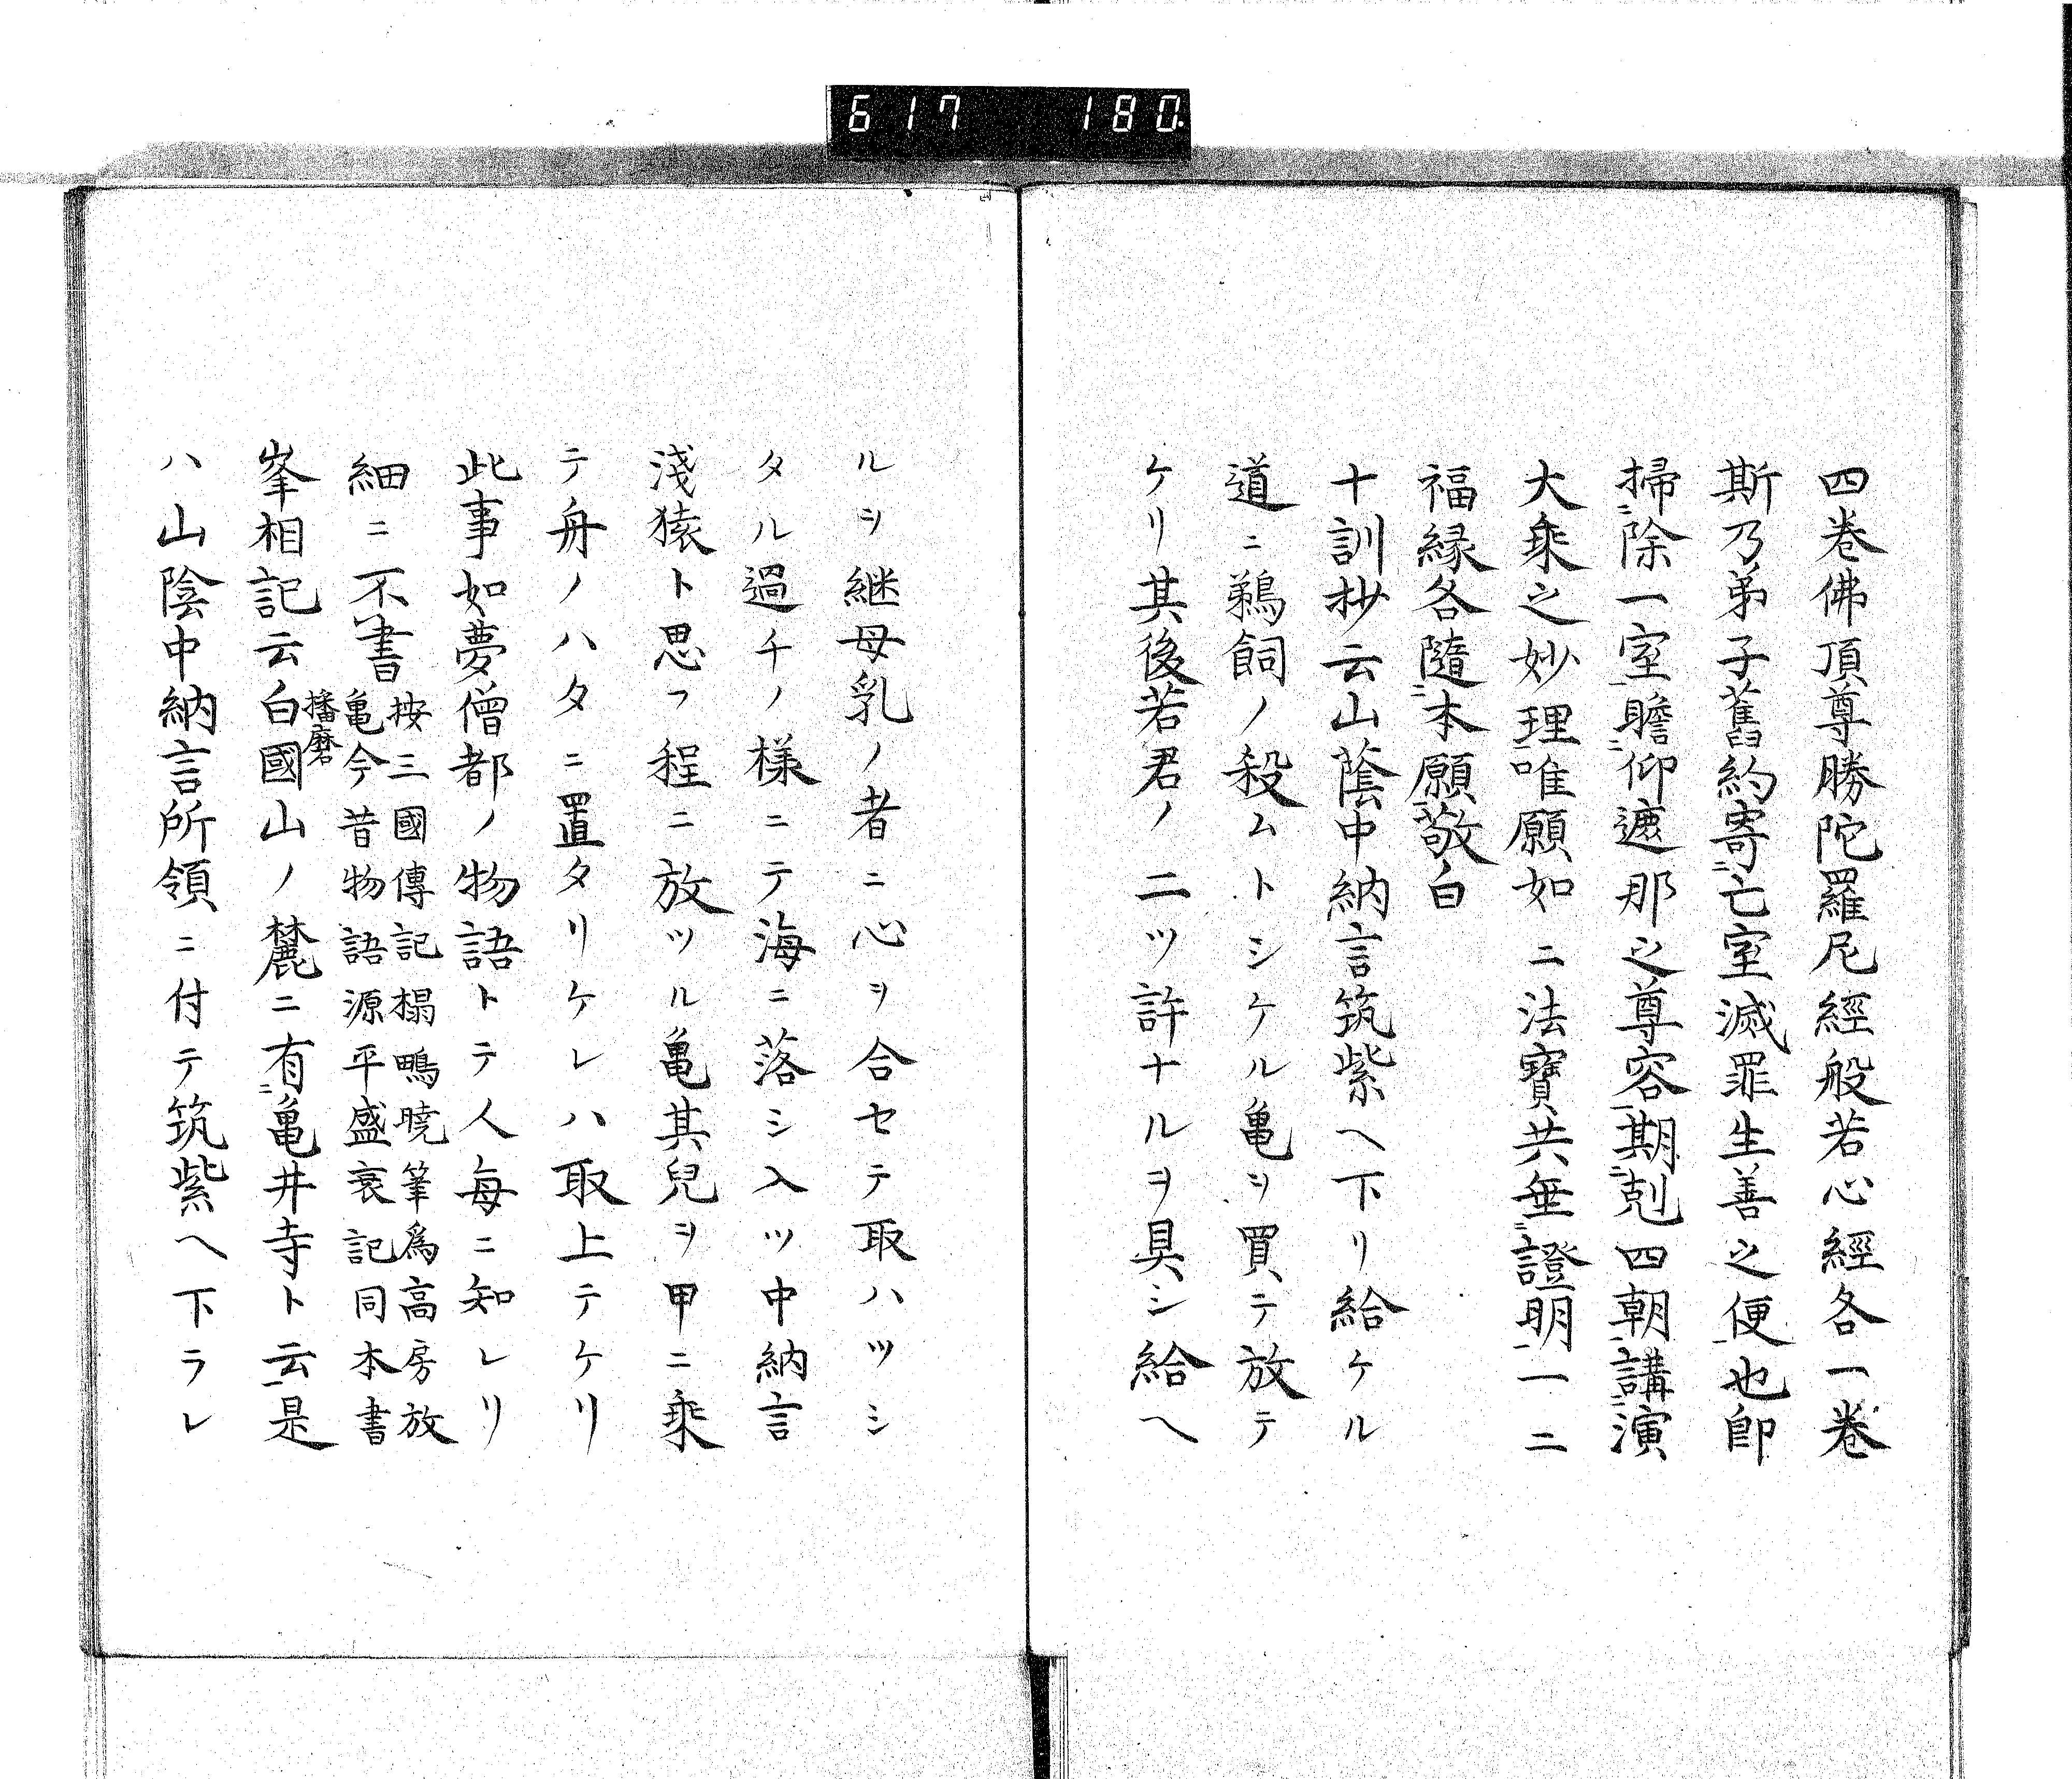 617 180
四卷佛頂尊勝陀羅尼經般若心經各一卷
斯乃弟子舊約寄ニ亡室滅罪生善之便一也即
掃ニ除一室一瞻ニ仰遮那之尊容一期ニ剋四朝一講ニ演
大乘之妙理一唯願如二法寶共垂ニ證明一一二
福縁各隨ニ本願一敬白
十訓抄云山蔭中納言筑紫ヘ下リ給ケル
道ニ鵜飼ノ殺ムトシケル亀ヲ買テ放テ
ケリ其後若君ノ二ツ許ナルヲ具シ給ヘ
ルヲ継母乳ノ者ニ心ヲ合セテ取ハツシ
タル過チノ様ニテ海ニ落シ入ツ中納言
淺猿ト思フ程ニ放ツル亀其兒ヲ甲ニ乘
テ舟ノハタニ置タリケレハ取上テケリ
此事如夢僧都ノ物語トテ人毎ニ知レリ
細ニ不書
按三國傳記榻鴫曉筆為高房放
亀今昔物語源平盛衰記同本書
峯相記云白國山ノ麓ニ有ニ亀井寺ト云一是
播磨
ハ山陰中納言所領ニ付テ筑紫ヘ下ラレ